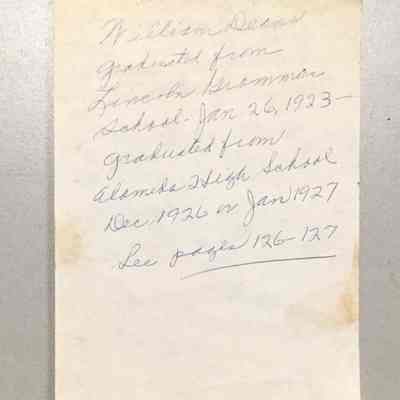 William Deans
graduated from
Lincoln Grammar
School - Jan 26, 1923 -
graduated from
Alameda High School
Dec. 1926 or Jan 1927
See pages 126-127